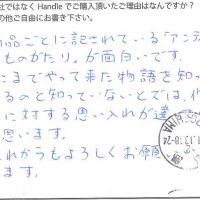 社ではなく Handle でご購入頂いたご理由はなんですか？
の他ご自由にお書き下さい。
品ごとに記されている「アンティ
ものがたり」が面白いです。
こまでやって来た物語を知って
るのと知っていないとでは、作
に対する思い入れが違
思います。
れからもよろしくお願
ます。